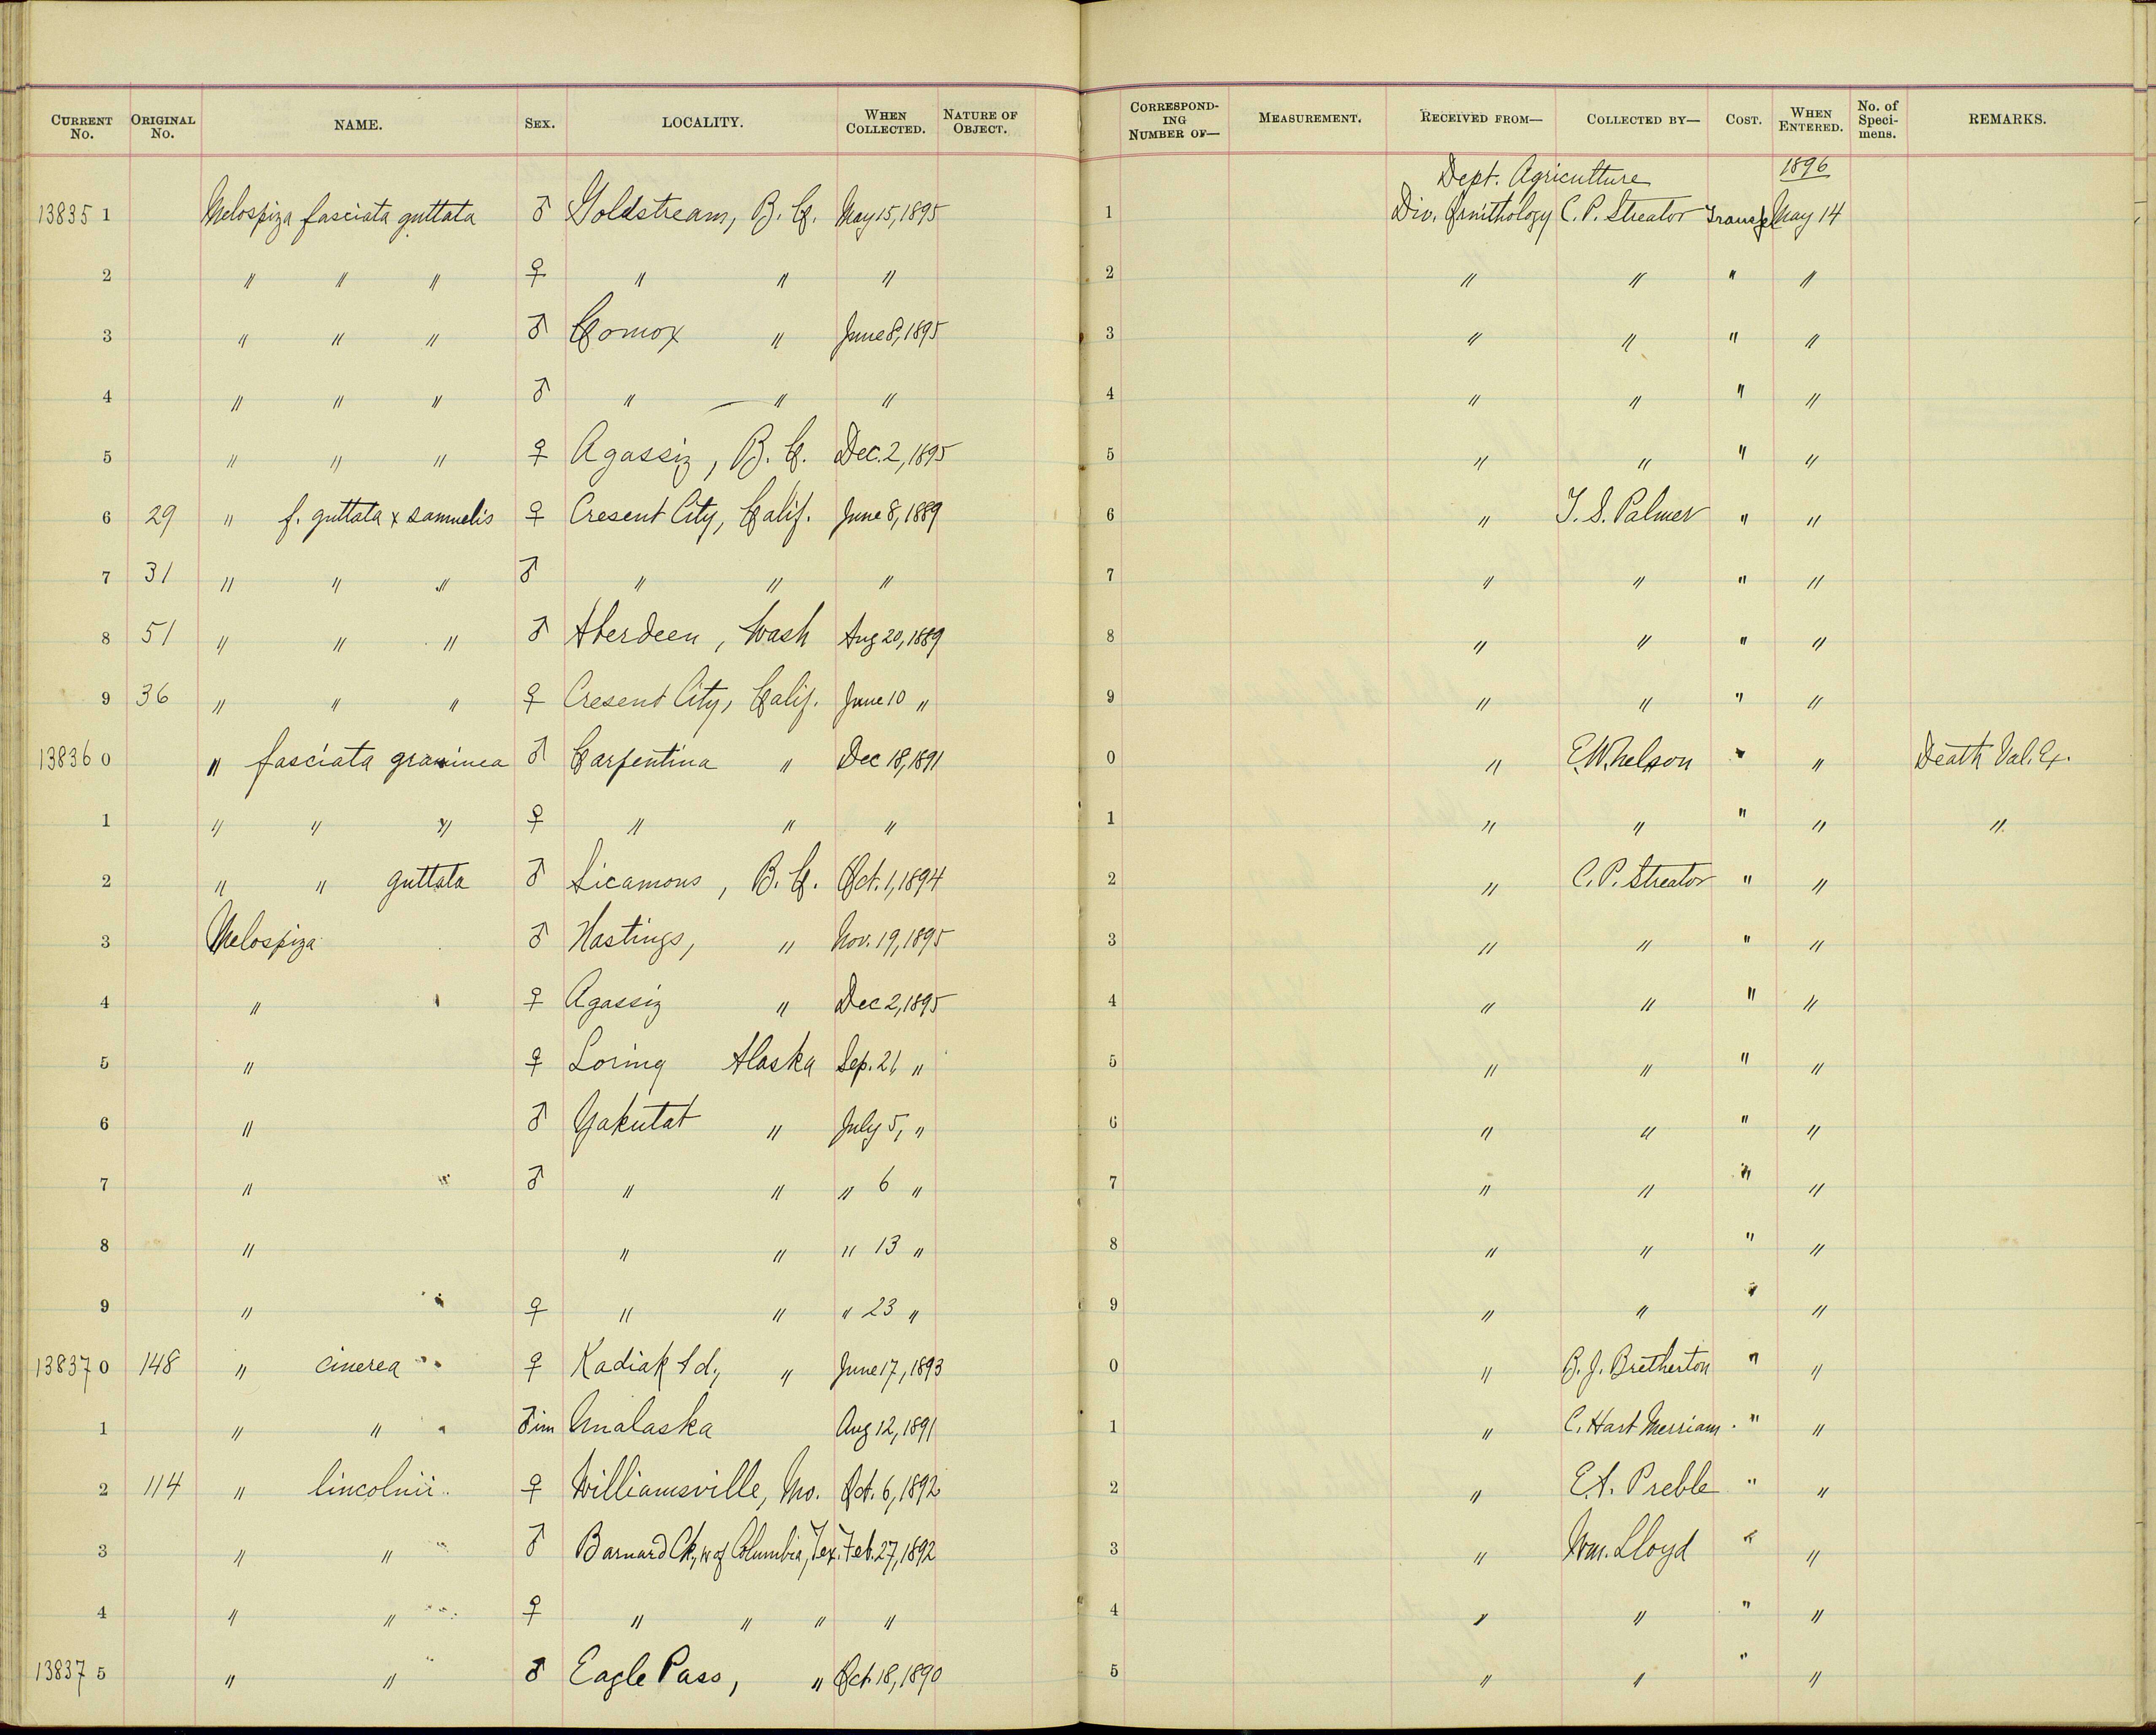 CURRENT No. ORIGINAL No. NAME. SEX. LOCALITY. WHEN COLLECTED. NATURE OF OBJECT. CORRESPONDING NUMBER OF— MEASUREMENT. RECEIVED FROM— COLLECTED BY— COST. WHEN ENTERED. No. of Specimens. REMARKS.
Dept. Agriculture 1896
13835 1 Melospiza fasciata guttata ♂ Goldstream, B. C. May 15, 1895 1 Div. Ornithology C. P. Streator Transf. May 14
2 " " " ♀ " " " 2 " " " "
3 " " " ♂ Comox " June 8, 1895 3 " " " "
4 " " " ♂ " " " 4 " " " "
5 " " " ♀ Agassiz, B. C. Dec. 2, 1895 5 " " " "
6 29 " f. guttata x samuelis ♀ Cresent City, Calif. June 8, 1889 6 " T. S. Palmer " "
7 31 " " " ♂ " " " 7 " " " "
8 51 " " " ♂ Aberdeen, Wash Aug 20, 1889 8 " " " "
9 36 " " " ♀ Cresent City, Calif. June 10 " 9 " " " "
13836 0 " fasciata graminea ♂ Carpentina " Dec 18, 1891 0 " E. W. Nelson " " Death Val. Ex.
1 " " " ♀ " " " 1 " " " " "
2 " " guttata ♂ Sicamous, B. C. Oct. 1, 1894 2 " C. P. Streator " "
3 Melospiza ♂ Hastings, " Nov. 19, 1895 3 " " " "
4 " ♀ Agassiz " Dec 2, 1895 4 " " " "
5 " ♀ Loring Alaska Sep. 21, " 5 " " " "
6 " ♂ Yakutat " July 5, " 6 " " " "
7 " ♂ " " " 6 " 7 " " " "
8 " " " " 13 " 8 " " " "
9 " ♀ " " " 23 " 9 " " " "
13837 0 148 " cinerea ♀ Kadiak Id., " June 17, 1893 0 " B. J. Bretherton " "
1 " " ♂ im Unalaska Aug 12, 1891 1 " C. Hart Merriam " "
2 114 " lincolnii ♀ Williamsville, Mo. Oct. 6, 1892 2 " E. A. Preble " "
3 " " ♂ Barnard Ck, w of Columbia, Tex. Feb. 27, 1892 3 " Wm. Lloyd " "
4 " " ♀ " " " " 4 " " " "
13837 5 " " ♂ Eagle Pass, " Oct. 18, 1890 5 " " " "